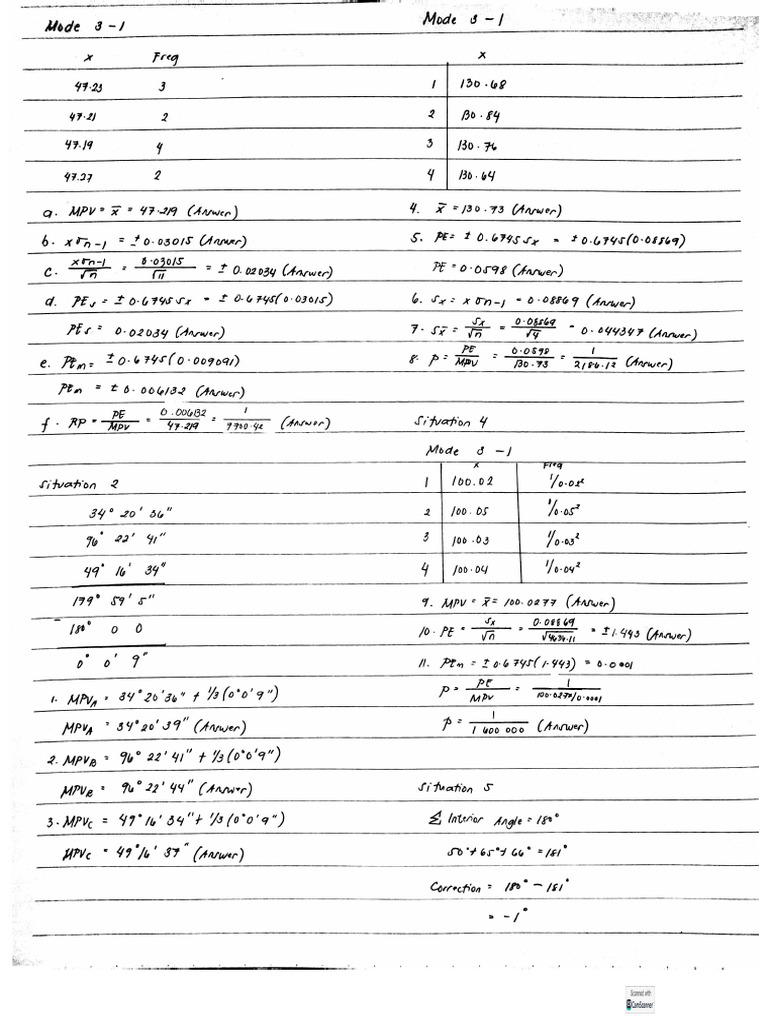 Mode 3-1
x Freq
47.23 3
47.21 2
47.19 4
47.27 2
a. MPV = x̄ = 47.219 (Answer)
b. xσn-1 = ± 0.03015 (Answer)
c. xσn-1/√n = 0.03015/√11 = ± 0.02034 (Answer)
d. PEs = ± 0.6745 Sx = ± 0.6745 (0.03015)
PEs = 0.02034 (Answer)
e. PEm = ± 0.6745 (0.009091)
PEm = ± 0.006132 (Answer)
f. RP = PE/MPV = 0.006132/47.219 = 1/7700.42 (Answer)
Situation 2
34° 20' 36"
96° 22' 41"
49° 16' 34"
179° 59' 5"
- 180° 0 0
0° 0' 9"
1. MPVA = 34° 20' 36" + 1/3 (0° 0' 9")
MPVA = 34° 20' 39" (Answer)
2. MPVB = 96° 22' 41" + 1/3 (0° 0' 9")
MPVB = 96° 22' 44" (Answer)
3. MPVC = 49° 16' 34" + 1/3 (0° 0' 9")
MPVC = 49° 16' 37" (Answer)
Mode 3-1
x
1 130.68
2 130.84
3 130.76
4 130.64
4. x̄ = 130.73 (Answer)
5. PE = ± 0.6745 Sx = ± 0.6745 (0.08869)
PE = 0.0598 (Answer)
6. Sx = xσn-1 = 0.08869 (Answer)
7. Sx̄ = Sx/√n = 0.08869/√4 = 0.044347 (Answer)
8. P = PE/MPV = 0.0598/130.73 = 1/2186.12 (Answer)
Situation 4
Mode 3-1
x Freq
1 100.02 1/0.02²
2 100.05 1/0.05²
3 100.03 1/0.03²
4 100.04 1/0.04²
9. MPV = x̄ = 100.0277 (Answer)
10. PE = Sx/√n = 0.08869/√4634.11 = ± 1.443 (Answer)
11. PEm = ± 0.6745 (1.443) = 0.0001
P = PE/MPV = 1/100.0277/0.0001
P = 1/1 600 000 (Answer)
Situation 5
Σ Interior Angle = 180°
50° + 65° + 66° = 181°
Correction = 180° - 181°
= -1°
Scanned with
CamScanner